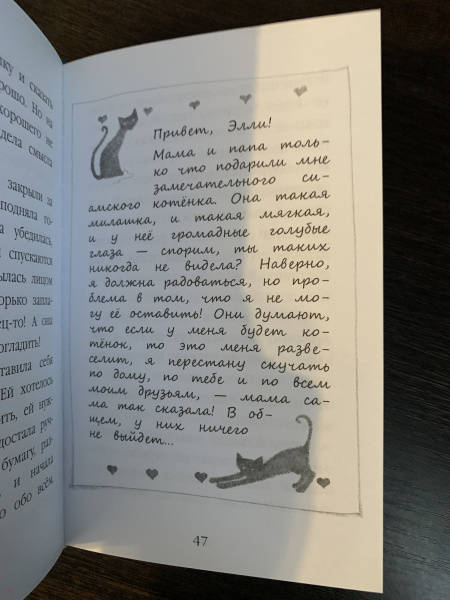 ку и сказать
рошо. Но на
хорошего не
дела смысла
закрыли за
подняла го-
а убедилась
спускаются
ылась лицом
орько запла-
ец-то! А она
огладить!
ставила себе
Ей хотелось
ить, ей нуж-
достала руч-
бумагу, раз-
и начала
о обо всём.
Привет, Элли!
Мама и папа толь-
ко что подарили мне
замечательного си-
амского котёнка. Она такая
милашка, и такая мягкая,
и у неё громадные голубые
глаза — спорим, ты таких
никогда не видела? Наверно,
я должна радоваться, но про-
блема в том, что я не мо-
гу её оставить! Они думают,
что если у меня будет ко-
тёнок, то это меня разве-
селит, я перестану скучать
по дому, по тебе и по всем
моим друзьям, — мама са-
ма так сказала! В об-
щем, у них ничего
не выйдет...
47